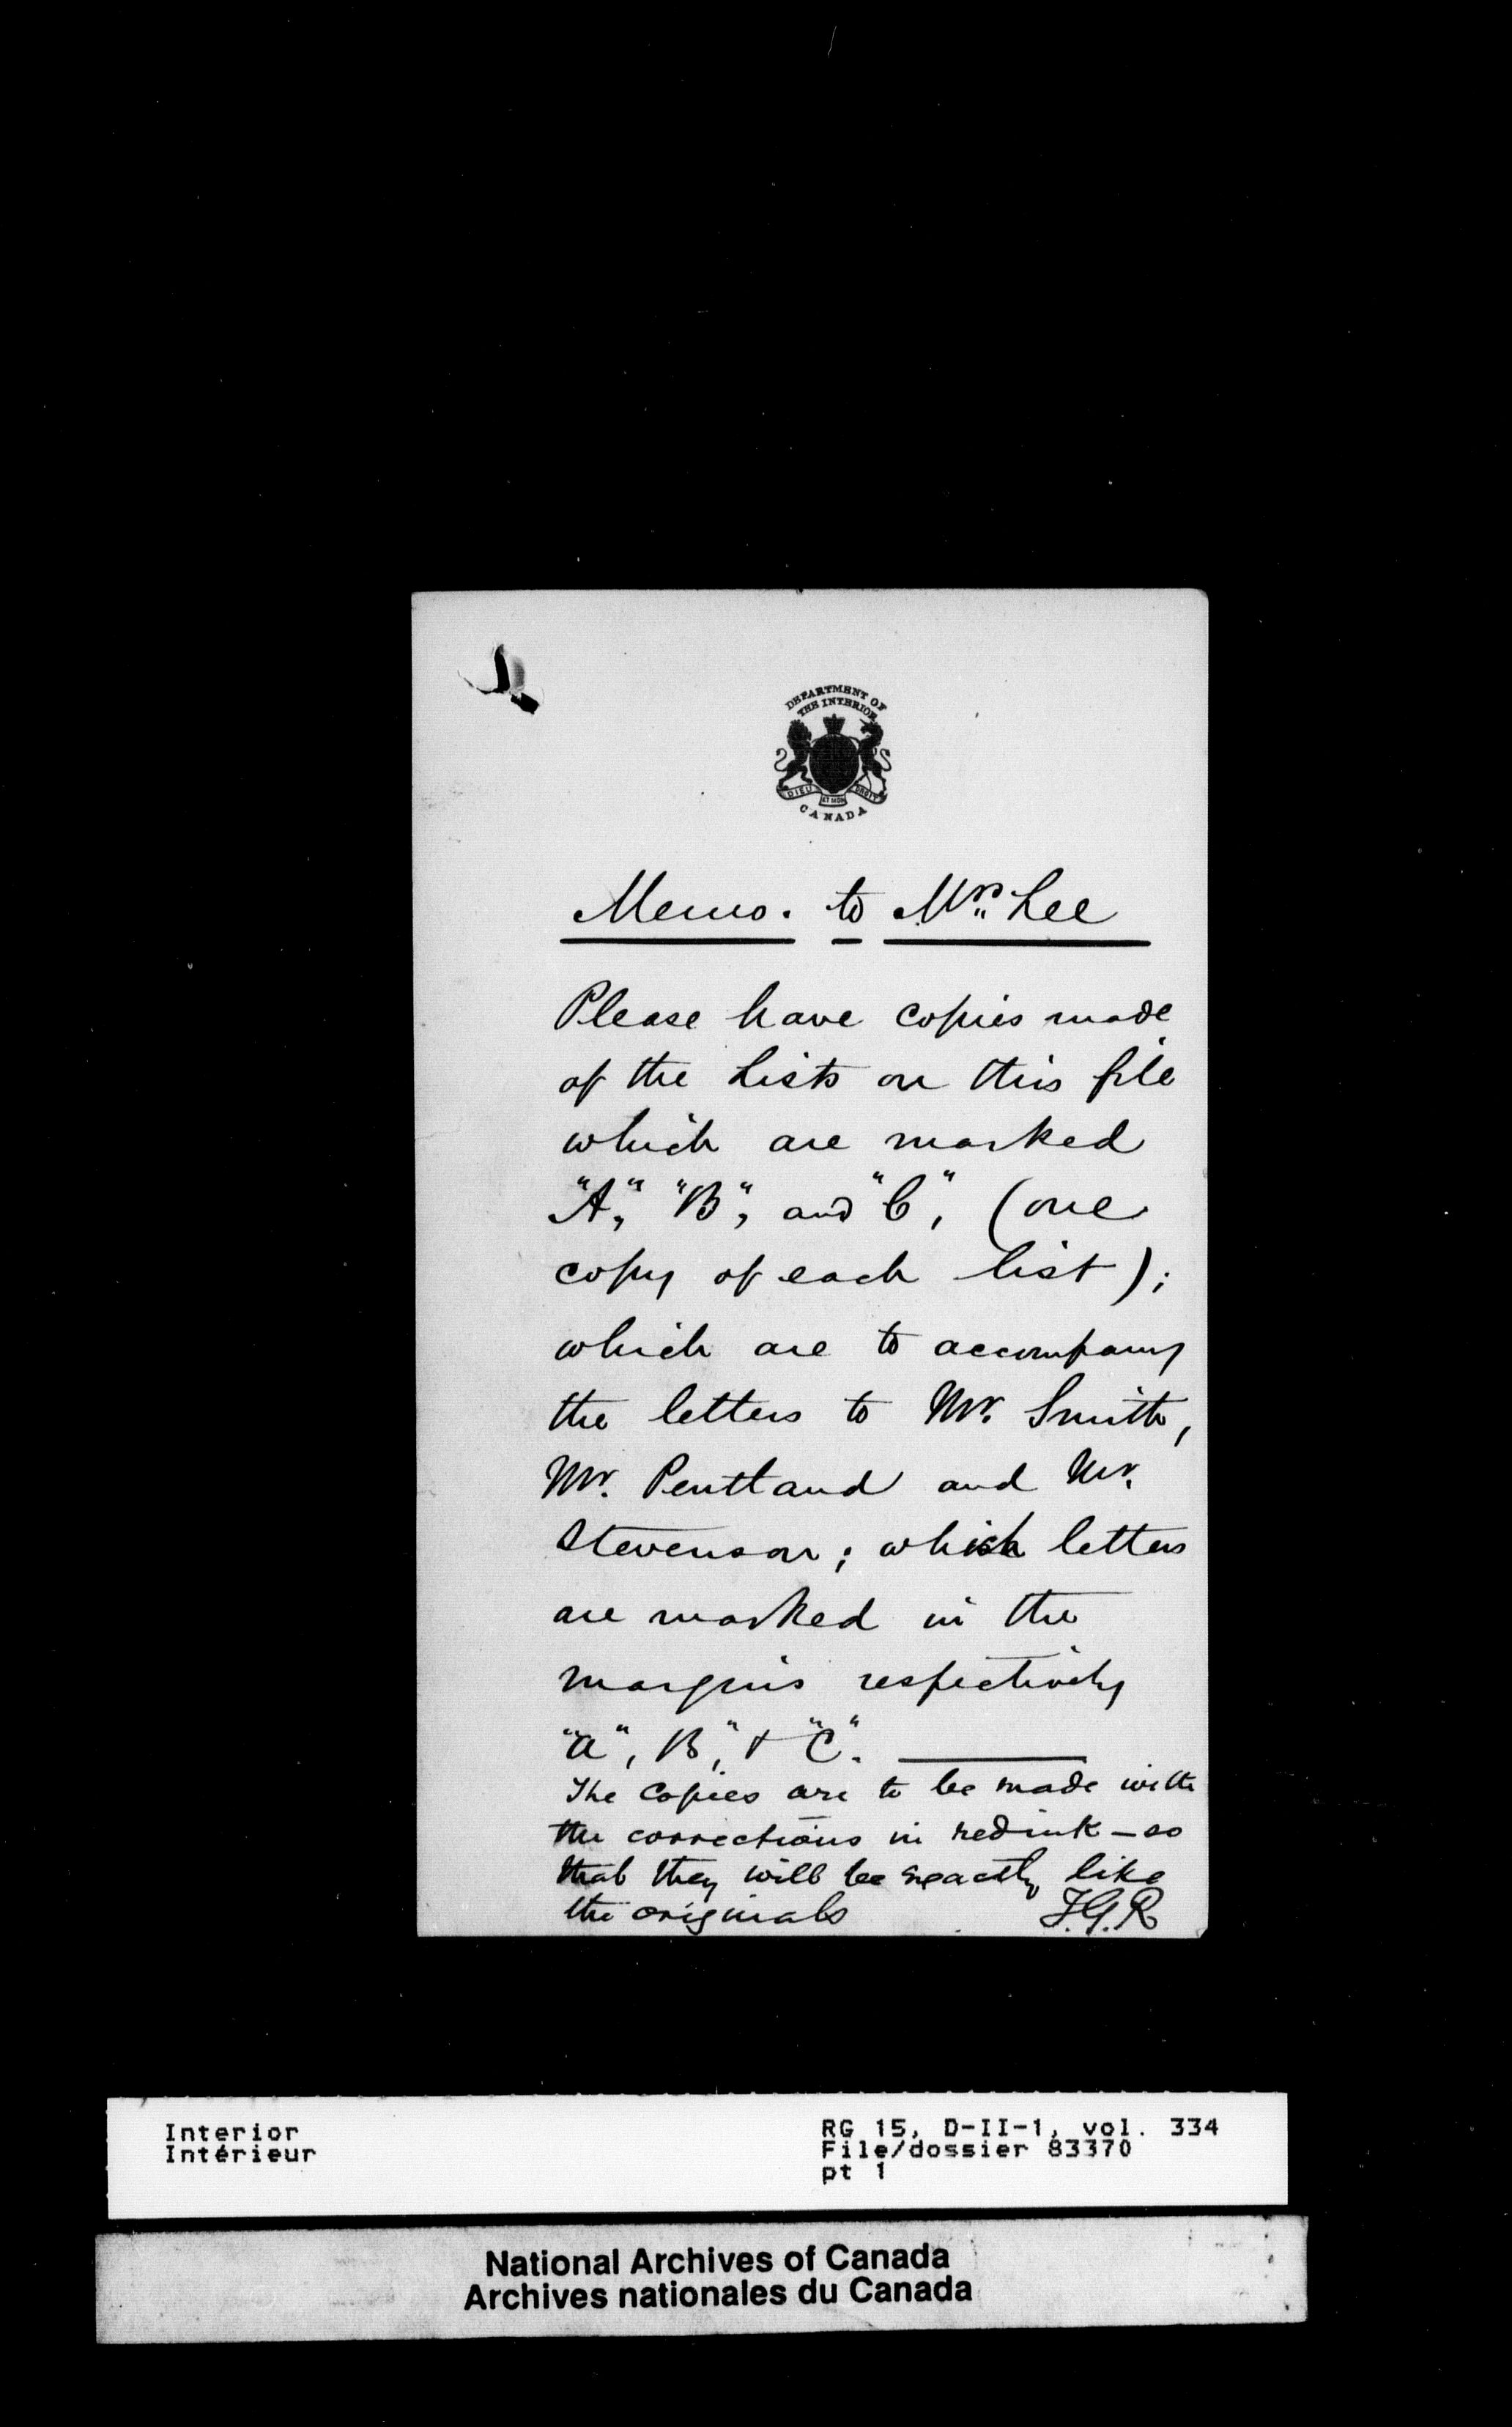 DEPARTMENT OF
THE INTERIOR
DIEU ET MON DROIT
CANADA
Memo. to Mrs. Lee
Please have copies made
of the Lists on this file
which are marked
"A", "B", and "C", (one
copy of each list);
which are to accompany
the letters to Mr. Smith,
Mr. Pentland and Mr.
Stevenson; which letters
are marked in the
margins respectively
"A", B," & "C".
The copies are to be made with
the corrections in red ink - so
that they will be exactly like
the originals F.G.R
Interior
Intérieur
RG 15, D-II-1, vol. 334
File/dossier 83370
pt 1
National Archives of Canada
Archives nationales du Canada